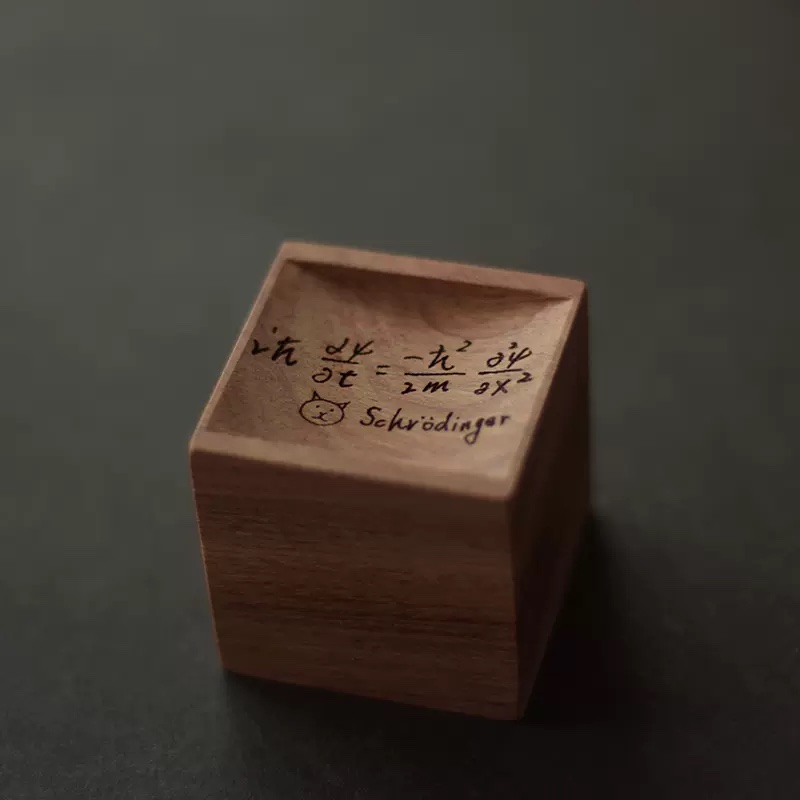 iħ ∂ψ/∂t = -ħ²/2m ∂²ψ/∂x²
Schrödinger